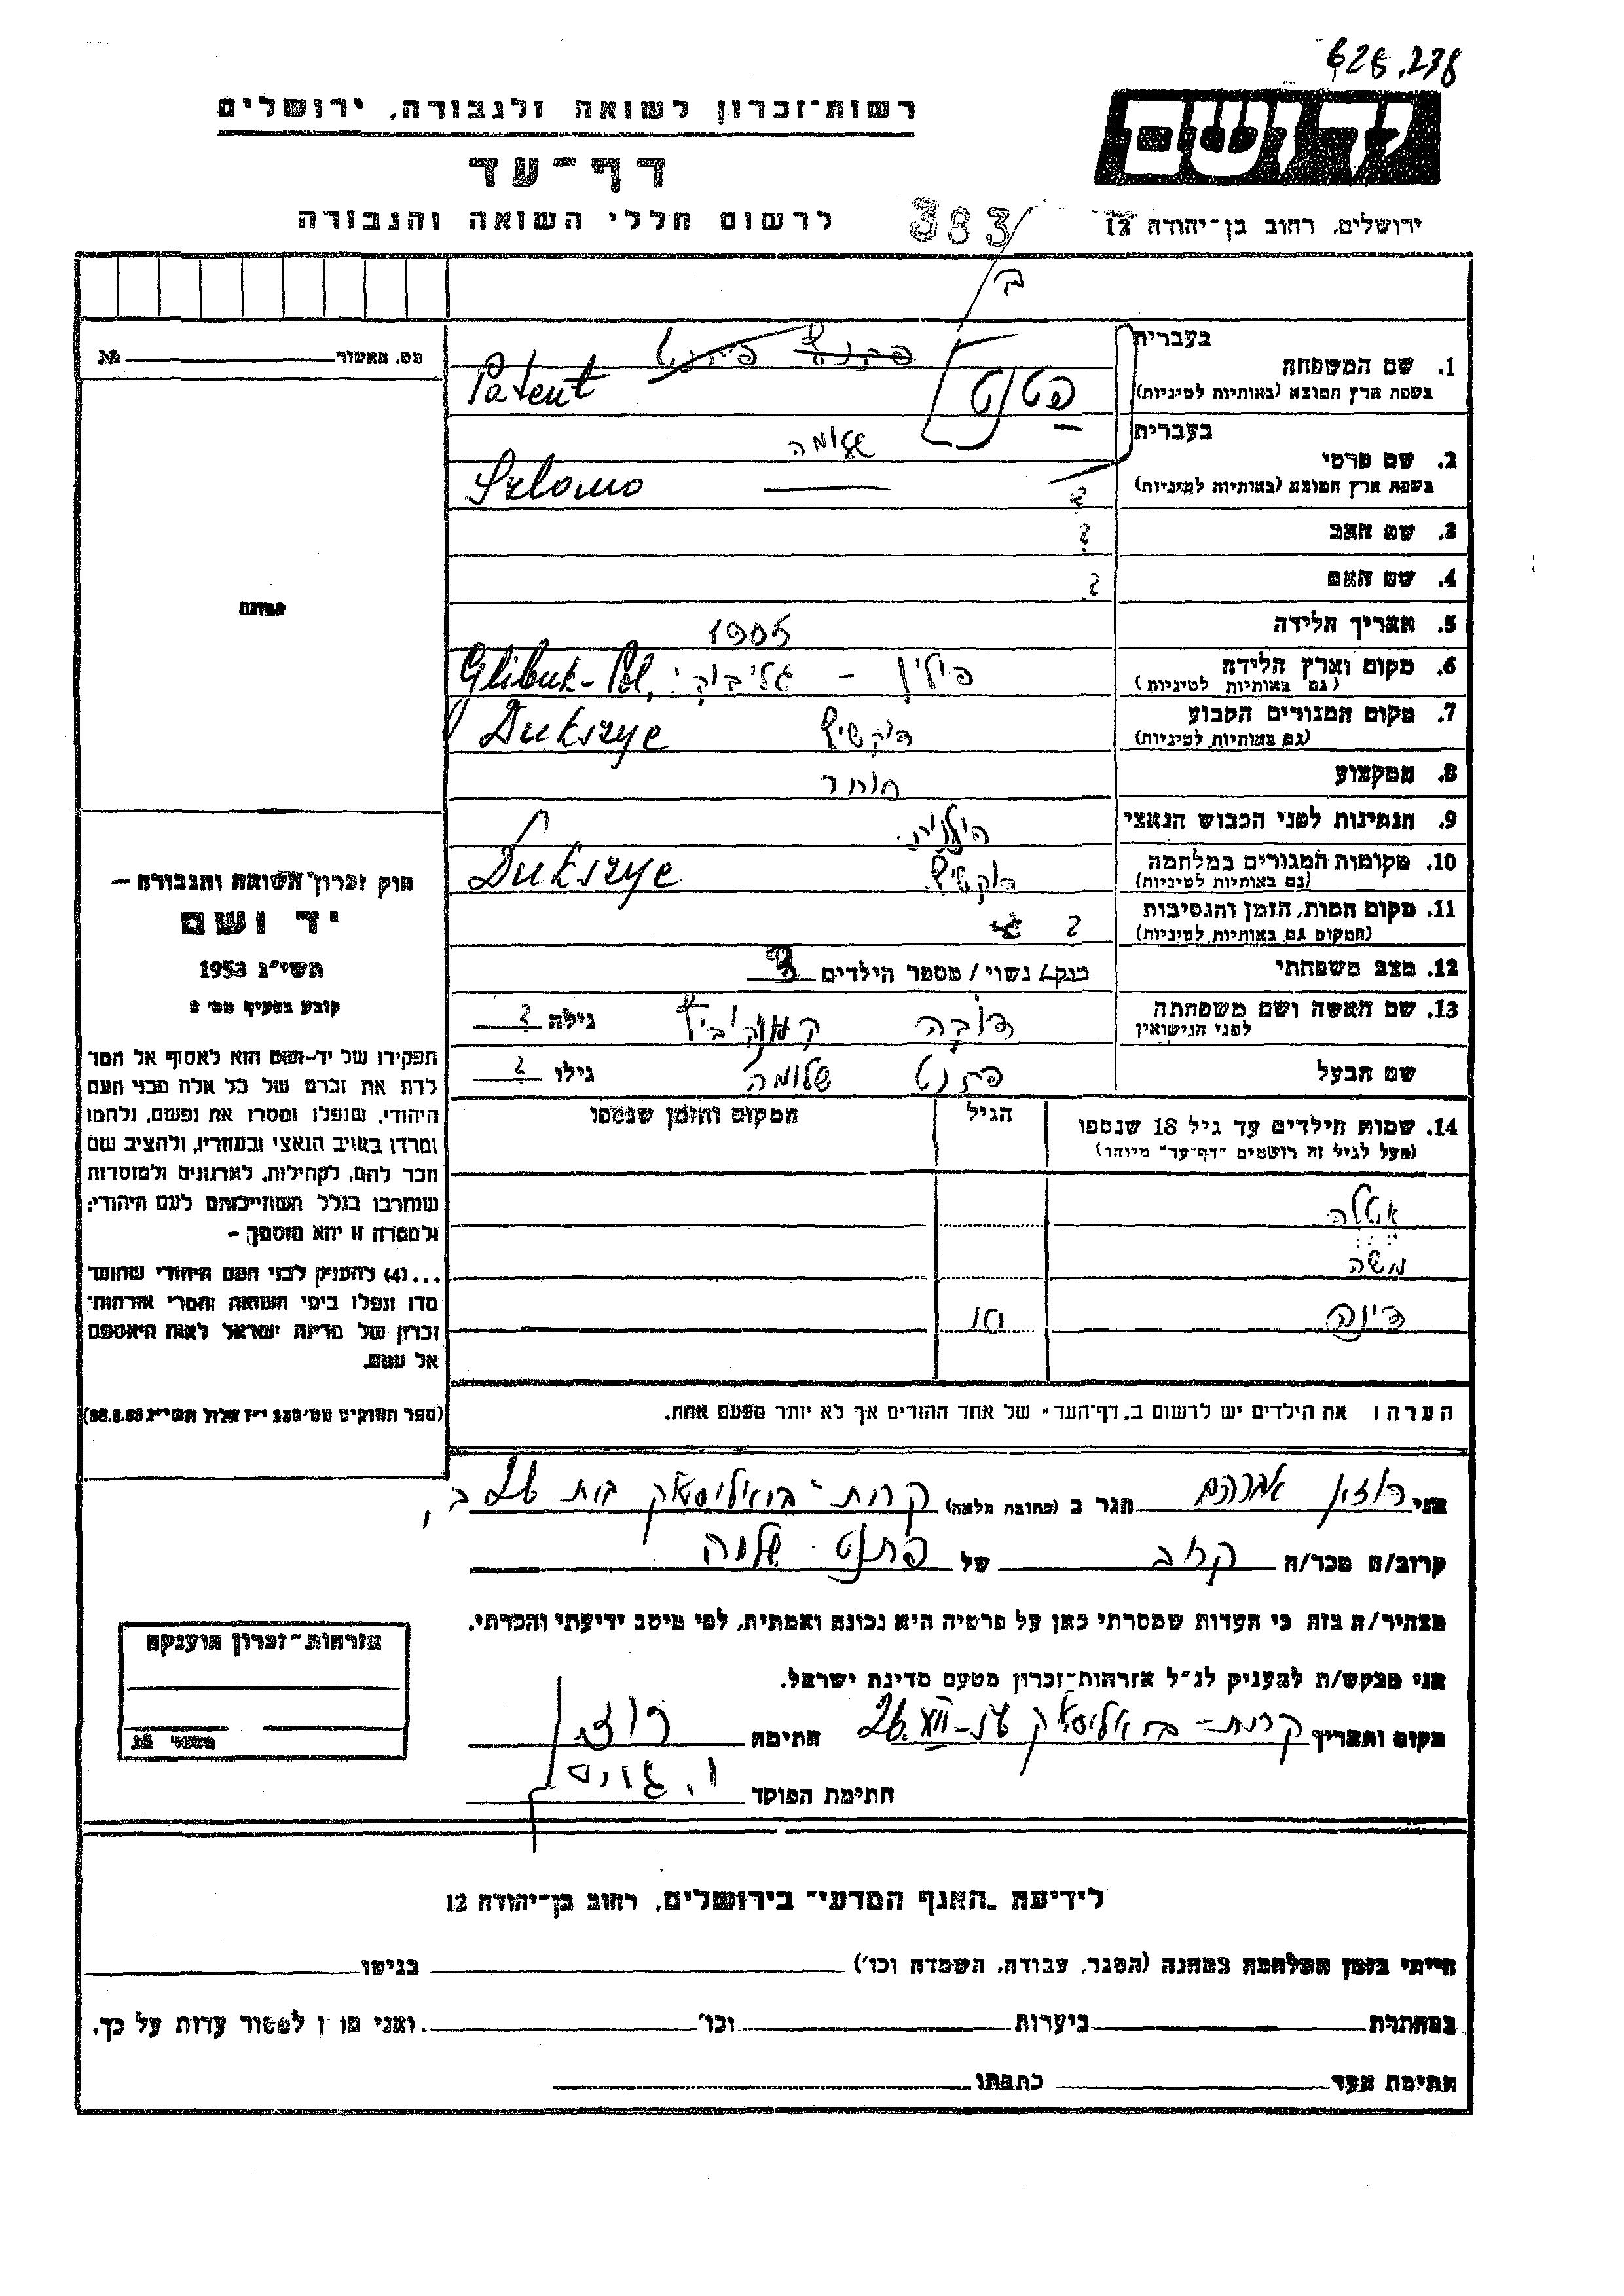 628.238
רשות-זכרון לשואה ולגבורה, ירושלים
יד ושם
דף-עד
לרשום חללי השואה והגבורה
383/
ב
ירושלים, רחוב בן-יהודה 12
מס. האשור № 
1. שם המשפחה בעברית
בשפת ארץ המוצא (באותיות לטיניות)
פטנט
Patent
2. שם פרטי בעברית שלומה
בשפת ארץ המוצא (באותיות לטיניות) Szlomo
3. שם האב ?
4. שם האם ?
5. תאריך הלידה 1905
6. מקום וארץ הלידה
(גם באותיות לטיניות)
פולין - גליבוקי Glibuk-Pol,
7. מקום המגורים הקבוע
(גם באותיות לטיניות)
דוקשיץ Dukszye
8. המקצוע סוחר
9. הנתינות לפני הכבוש הנאצי פולנית
10. מקומות המגורים במלחמה
(גם באותיות לטיניות)
דוקשיץ Dukszye
11. מקום המות, הזמן והנסיבות
(המקום גם באותיות לטיניות)
?
12. מצב משפחתי רוק/ נשוי / מספר הילדים 3
13. שם האשה ושם משפחתה
לפני הנישואין
דובה גילה ?
שם הבעל פתנט שלומה גילו ?
14. שמות הילדים עד גיל 18 שנספו
(מעל לגיל זה רושמים "דף-עד" מיוחד)
הגיל
המקום והזמן שנספו
אטלה
משה
דינה 10
הערה: את הילדים יש לרשום ב"דף-העד" של אחד ההורים אך לא יותר מפעם אחת.
תמונה
חוק זכרון השואה והגבורה –
יד ושם
תשי"ג 1953
קובע בסעיף מס' 2
תפקידו של יד-ושם הוא לאסוף אל המו־
לדת את זכרם של כל אלה מבני העם
היהודי, שנפלו ומסרו את נפשם, נלחמו
ומרדו באויב הנאצי ובעוזריו, ולהציב שם
וזכר להם, לקהילות, לארגונים ולמוסדות
שנחרבו בגלל השתייכותם לעם היהודי;
ולמטרה זו יהא מוסמך –
...(4) להעניק לבני העם היהודי שהוש־
מדו ונפלו בימי השואה והמרי אזרחות־
זכרון של מדינת ישראל לאות היאספם
אל עמם.
אני רוזין אברהם הגר ב (כתובת מלאה) קרית-ביאליסטוק בית 26 ב
קרוב/ה מכר/ה קרוב של פתנט שלומה
מצהיר/ה בזה כי העדות שמסרתי כאן על פרטיה היא נכונה ואמתית, לפי מיטב ידיעתי והכרתי.
אני מבקש/ת להעניק לנ"ל אזרחות-זכרון מטעם מדינת ישראל.
מקום ותאריך קרית-ביאליסטוק חתימה רוזין
חתימת הפוקד
אזרחות-זכרון הוענקה
מספר №
לידיעת "האגף המדעי" בירושלים, רחוב בן-יהודה 12
הייתי בזמן המלחמה במחנה (הסגר, עבודה, השמדה וכו') בגיטו
במחתרת ביערות וכו' ואני מו ן למסור עדות על כך.
חתימת העד כתבתו